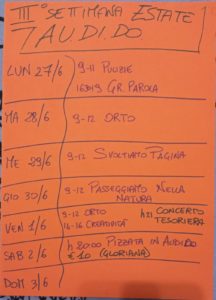 III° SETTIMANA ESTATE
7 AUDIDO
LUN 27/6 9-11 PULIZIE
GR. PAROLA
MA 28/6 9-12 ORTO
ME 29/6 9-12 SVOLTIAMO PAGINA
GIO 30/6 9-12 PASSEGGIAMO NELLA
NATURA
VEN 1/6 9-12 ORTO h 21 CONCERTO
14-16 CREATIVITÀ TESORIERA
SAB 2/6 h 20:00 PIZZATA IN AUDIDO
€10 (GLORIANA)
DOM 3/6